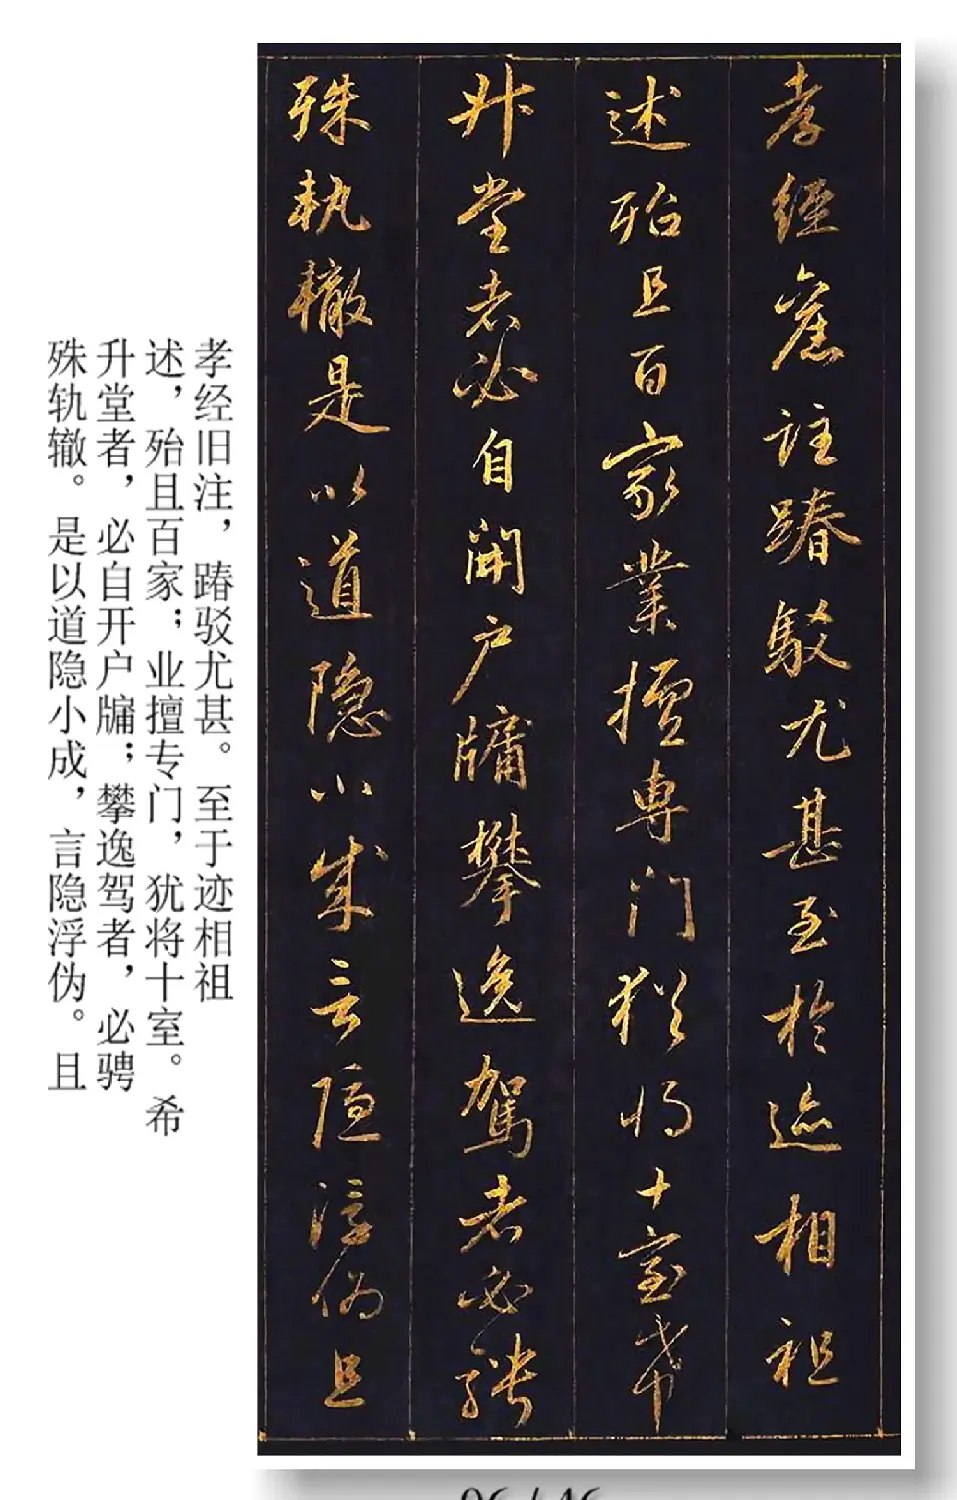 孝經舊註踳駮尤甚至於迹相祖
述殆且百家業擅專門猶将十室希
升堂者必自開户牖攀逸駕者必騁
殊軌轍是以道隐小成言隐浮偽且
孝经旧注，踳驳尤甚。至于迹相祖
述，殆且百家；业擅专门，犹将十室。希
升堂者，必自开户牖；攀逸驾者，必骋
殊轨辙。是以道隐小成，言隐浮伪。且